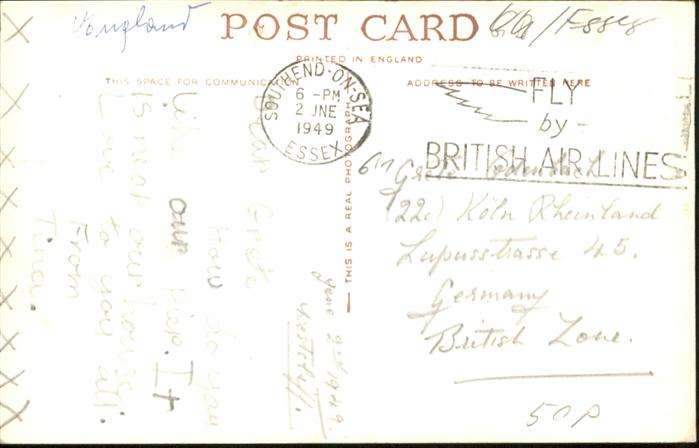 England
POST CARD
/Essex
PRINTED IN ENGLAND
THIS SPACE FOR COMMUNICATION
ADDRESS TO BE WRITTEN HERE
SOUTHEND-ON-SEA
6 - PM
2 JNE
1949
ESSEX
FLY
by -
BRITISH AIR LINES
THIS IS A REAL PHOTOGRAPH
June 2nd 1949.
Westcliff.
Dear Grete
How do you
like our Pier. It
is near our house
Love to you all.
From
Tina.
X X X X X X X X X X X
Grete
(22c) Köln Rheinland
Lupusstrasse 45.
Germany
British Zone.
50P